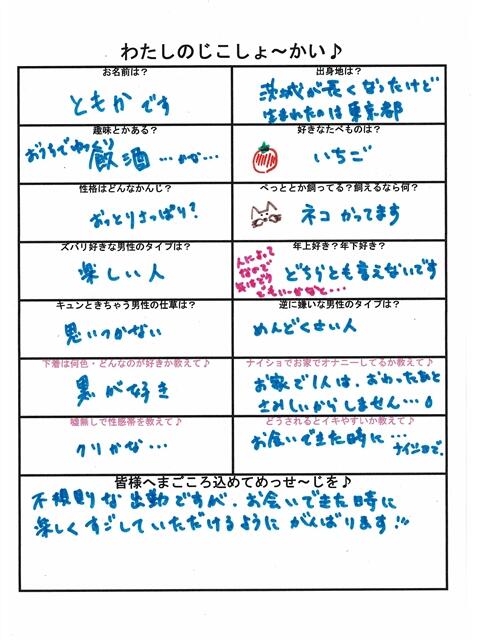 わたしのじこしょ～かい♪
お名前は？
ともかです
出身地は？
茨城が長くなったけど
生まれたのは東京都
趣味とかある？
おうちで 飲酒…かな…
好きなたべものは？
いちご
性格はどんなかんじ？
おっとりさっぱり？
ぺっととか飼ってる？飼えるなら何？
ネコ かってます
ズバリ好きな男性のタイプは？
楽しい人
年上好き？年下好き？
人によって
なので
どちらとも言えないです
キュンときちゃう男性の仕草は？
思いつかない
逆に嫌いな男性のタイプは？
めんどくさい人
下着は何色・どんなのが好きか教えて♪
黒が好き
ナイショでお家でオナニーしてるか教えて♪
お家で1人は、おわったあと
さみしいからしません…
嘘無しで性感帯を教えて♪
クリかな…
どうされるとイキやすいか教えて♪
お会いできた時に…
ナイショで。
皆様へまごころ込めてめっせ～じを♪
不規則な出勤ですが、お会いできた時に
楽しくすごしていただけるようにがんばります!!!